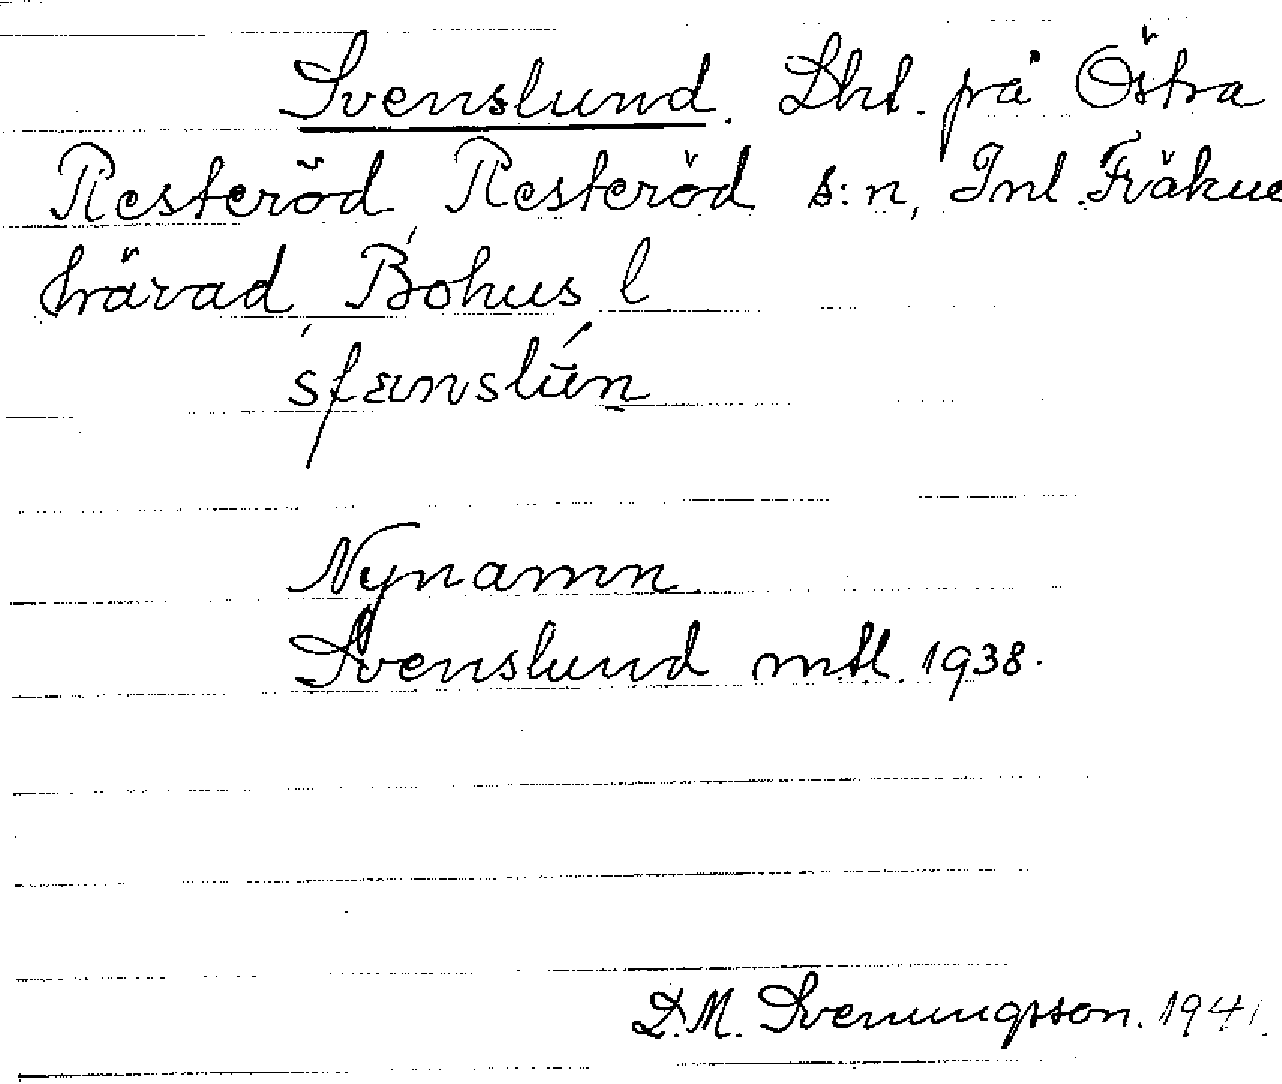 Svenslund. Lht. på Östra
Resteröd, Resteröd s:n, Inl. Fräkne
härad, Bohus l
Nynamn
Svenslund mtl. 1938.
D.M. Svenungsson. 1941.